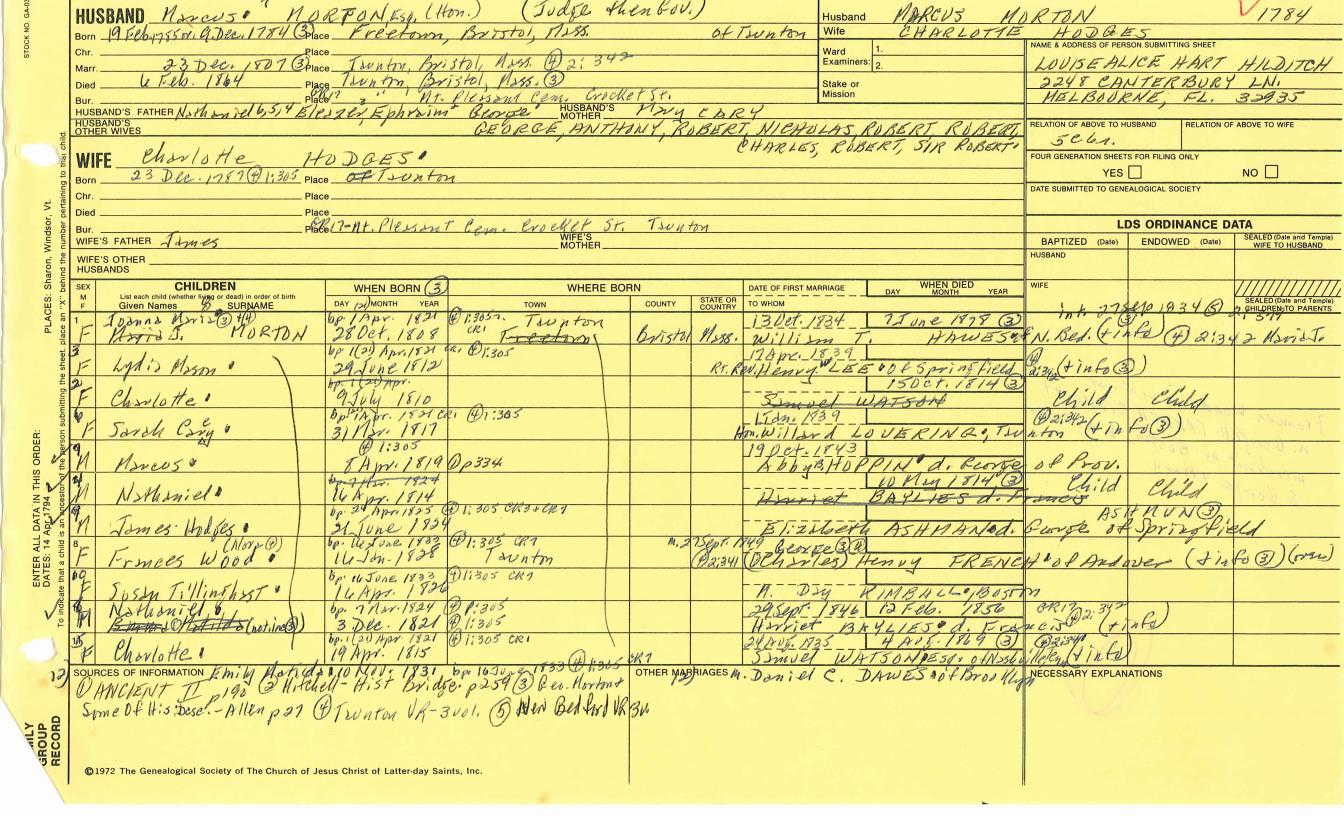 HUSBAND Marcus MORTON Esq. (Hon.) (Judge then Gov.)
Born 19 Feb. 9 Dec. 1784 ③ Place Freetown, Bristol, Mass. of Taunton
Chr. Place
Marr. 23 Dec. 1807 ③ Place Taunton, Bristol, Mass. ④ 2:342
Died 6 Feb. 1864 Place Taunton, Bristol, Mass. ③
Bur. Place Mt. Pleasant Cem. Crocket St.
HUSBAND'S FATHER Nathaniel 6,5,4 Eleazer, Ephraim George HUSBAND'S MOTHER Mary CARY
HUSBAND'S OTHER WIVES GEORGE, ANTHONY, ROBERT, NICHOLAS, ROBERT, ROBERT,
CHARLES, ROBERT, SIR ROBERT
WIFE Charlotte HODGES
Born 23 Dec. 1787 ④ 1:305 Place of Taunton
Chr. Place
Died Place
Bur. Place Mt. Pleasant Cem. Crocket St. Taunton
WIFE'S FATHER James WIFE'S MOTHER
WIFE'S OTHER HUSBANDS
Husband MARCUS MORTON 1784
Wife CHARLOTTE HODGES
Ward Examiners: 1. 2.
Stake or Mission
NAME & ADDRESS OF PERSON SUBMITTING SHEET
LOUISE ALICE HART HILDITCH
2248 CANTERBURY LN.
MELBOURNE, FL. 32935
RELATION OF ABOVE TO HUSBAND RELATION OF ABOVE TO WIFE
FOUR GENERATION SHEETS FOR FILING ONLY
YES NO
DATE SUBMITTED TO GENEALOGICAL SOCIETY
LDS ORDINANCE DATA
BAPTIZED (Date) ENDOWED (Date) SEALED (Date and Temple) WIFE TO HUSBAND
HUSBAND
WIFE
SEALED (Date and Temple) CHILDREN TO PARENTS
SEX M F
CHILDREN
List each child (whether living or dead) in order of birth
Given Names SURNAME
WHEN BORN ③
DAY MONTH YEAR
WHERE BORN
TOWN COUNTY STATE OR COUNTRY
DATE OF FIRST MARRIAGE
TO WHOM
WHEN DIED
DAY MONTH YEAR
1 Joanna Maria ③ bp. 1 Apr. 1821 ④ 1:305 CR1 Taunton 13 Oct. 1834 7 June 1878 ③ int. 27 Sep 1834 ⑤
F Maria J. MORTON 28 Oct. 1808 Freetown Bristol Mass. William T. HAWES of N. Bed. (+ info) ④ 2:342 Maria J.
3 bp 1 (21) Apr. 1821 CR1 ④ 1:305 17 Apr. 1839
F Lydia Mason 29 June 1812 Rt. Rev. Henry W LEE of Springfield ④ 2:342 (+ info ③)
2 bp. 1 (21) Apr. 15 Oct. 1814 ③
F Charlotte 9 July 1810 Samuel WATSON Child Child
6 bp. Apr. 1821 CR1 ④ 1:305 1 Jan. 1839 ④ 2:342
F Sarah Cary 31 Mar. 1817 Hon. Willard LOVERING, Taunton (+ info ③)
④ 1:305 19 Oct. 1843
M Marcus 8 Apr. 1819 ① p334 Abby B HOPPIN d. George of Prov.
4 bp. 7 Mar. 1824 10 May 1814 ③
M Nathaniel 16 Apr. 1814 Harriet BAYLIES d. Francis Child Child
9 bp. 24 Apr 1825 ④ 1:305 CR3+CR1 ASHMUN ③
M James Hodges 21 June 1824 Elizabeth ASHMAN d. George of Springfield
8 bp. 16 June 1833 ④ 1:305 CR1 m. 27 Sept. 1849 George ③④
F Frances Wood 16 Jan. 1828 Taunton ④ 2:341 (Charles) Henry FRENCH of Andover (+ info ③) (over)
10 bp. 16 June 1833 ④ 1:305 CR1
F Susan Tillinghast 16 Apr. 1826 M. Day KIMBALL, Boston
8 Nathaniel 6 bp. 7 Mar. 1824 ④ 1:305 29 Sept. 1846 12 Feb. 1856 CR17 ④ 2:342
M (not in ③) 3 Dec. 1821 ④ 1:305 Harriet BAYLIES d. Francis (+ info)
bp. 1 (21) Apr 1821 ④ 1:305 CR1 24 Aug. 1835 4 Aug. 1869 ③ ④ 2:341
F Charlotte 19 Apr. 1815 Samuel WATSON Esq. of Nashville (+ info)
12) SOURCES OF INFORMATION Emily Matilda 10 Nov. 1831. bp 16 June 1833 ④ 1:305 CR1
① ANCIENT II p190 ② Mitchell-Hist Bridge. p259 ③ Geo. Morton +
Some Of His Desc. - Allen p27 ④ Taunton VR-3vol. ⑤ New Bedford VR 3v
OTHER MARRIAGES 12) m. Daniel C. DAWES of Brooklyn
NECESSARY EXPLANATIONS
©1972 The Genealogical Society of The Church of Jesus Christ of Latter-day Saints, Inc.
STOCK NO.
ENTER ALL DATA IN THIS ORDER:
DATES: 14 Apr 1794
PLACES: Sharon, Windsor, Vt.
To indicate that a child is an ancestor of the person submitting the sheet, place an "X" behind the number pertaining to that child.
GROUP
RECORD